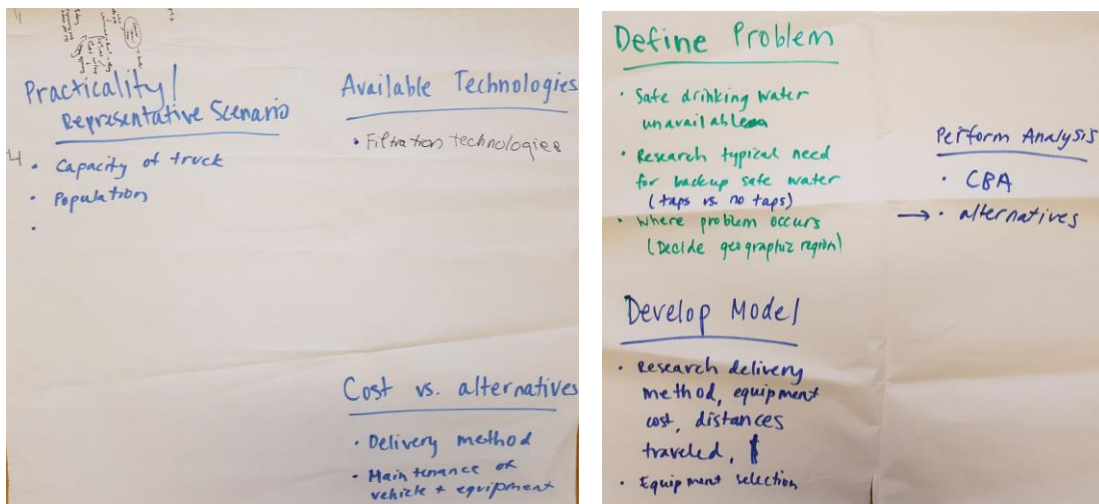 Practicality/
Representative Scenario
• Capacity of truck
• Population
•
Available Technologies
• Filtration technologies
Cost vs. alternatives
• Delivery method
• Maintenance of
vehicle + equipment
Define Problem
• Safe drinking water
unavailable
• Research typical need
for backup safe water
(taps vs. no taps)
• Where problem occurs
(Decide geographic region)
Perform Analysis
• CBA
→ • alternatives
Develop Model
• Research delivery
method, equipment
cost, distances
traveled,
• Equipment selection